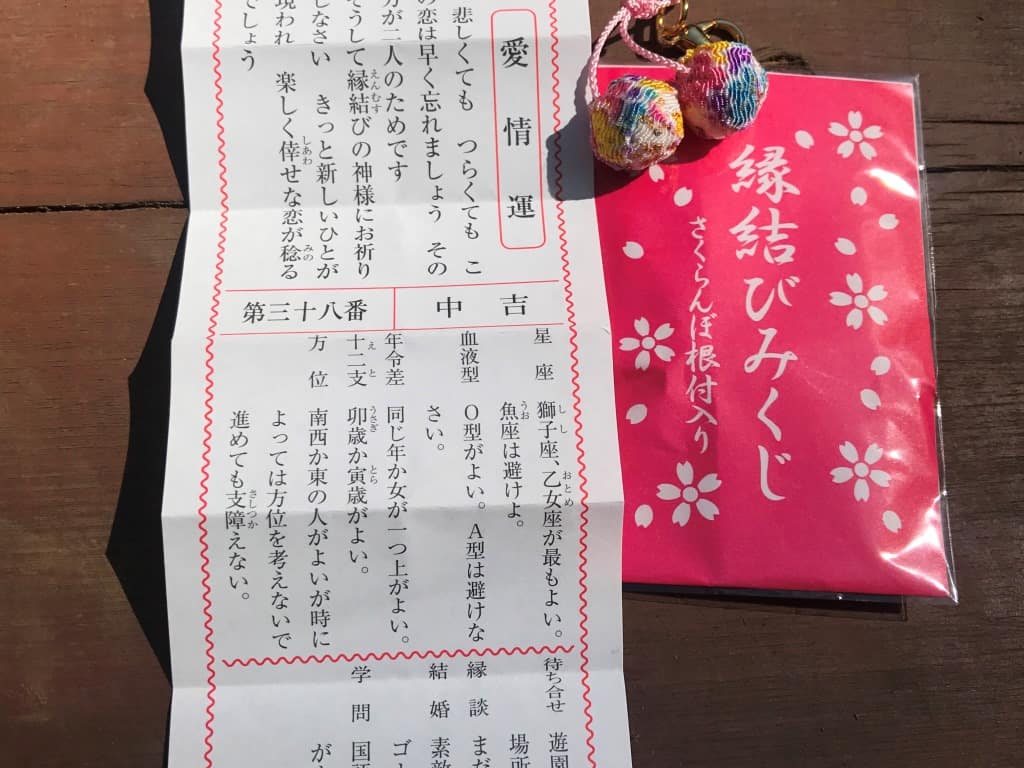 愛情運
悲しくても つらくても こ
の恋は早く忘れましょう その
方が二人のためです
そうして縁結びの神様にお祈り
しなさい きっと新しいひとが
現われ 楽しく倖せな恋が稔る
でしょう
中吉
第三十八番
星座 獅子座、乙女座が最もよい。
魚座は避けよ。
血液型 O型がよい。A型は避けな
さい。
年令差 同じ年か女が一つ上がよい。
十二支 卯歳か寅歳がよい。
方位 南西か東の人がよいが時に
よっては方位を考えないで
進めても支障えない。
待ち合せ 遊園
場所
縁談 まだ
結婚 素敵
ゴ
学問 国語
が
縁結びみくじ
さくらんぼ根付入り